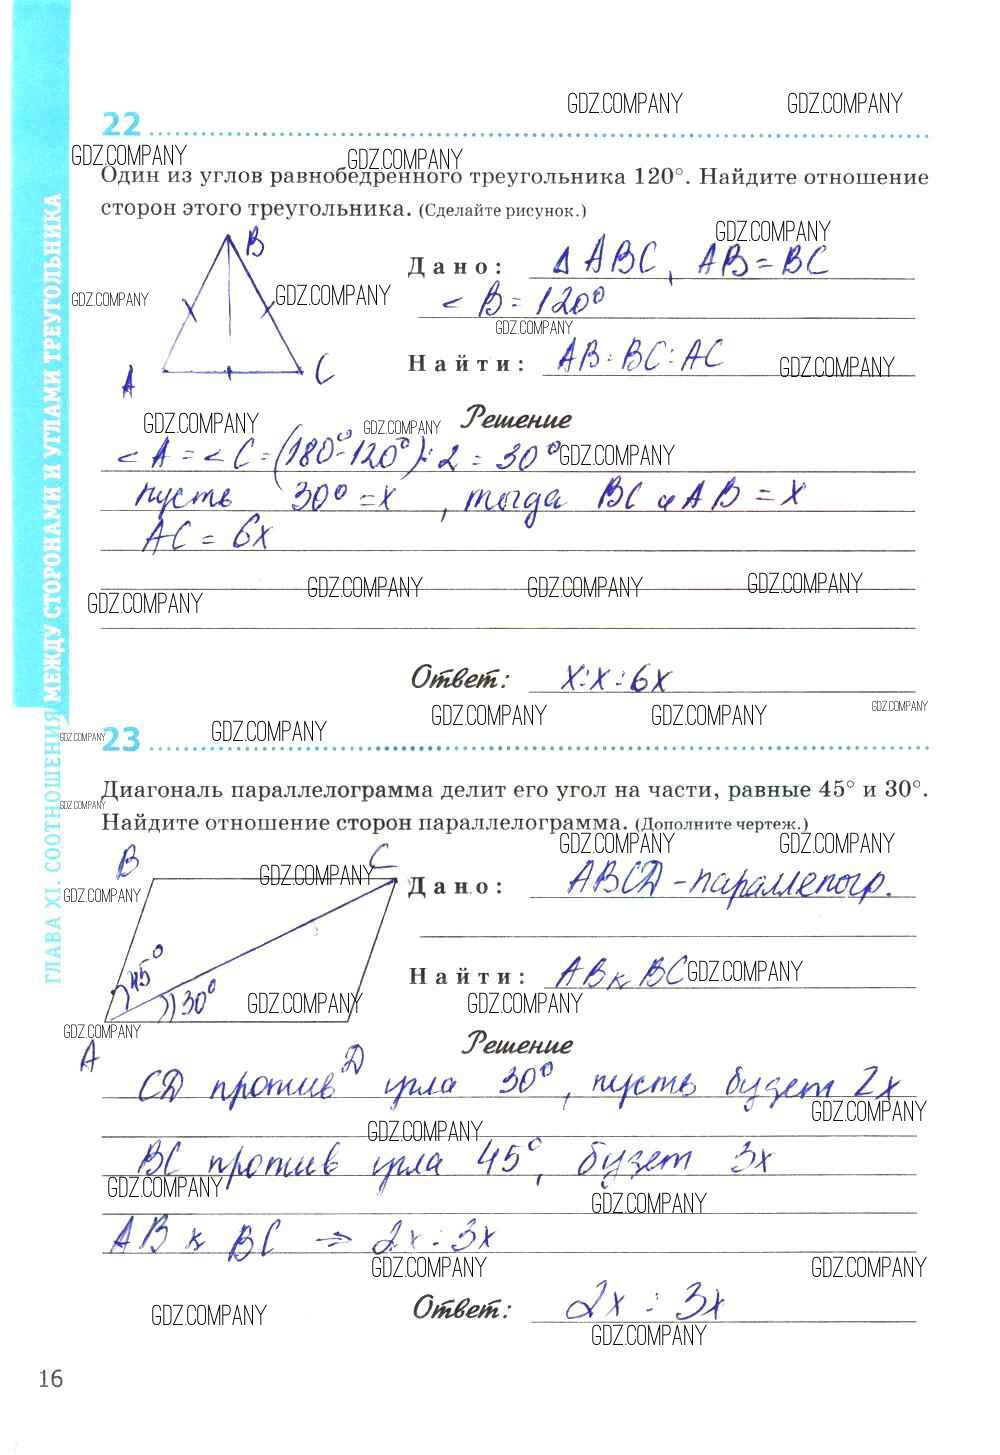 GDZ.COMPANY GDZ.COMPANY
22
GDZ.COMPANY GDZ.COMPANY
Один из углов равнобедренного треугольника 120°. Найдите отношение
сторон этого треугольника. (Сделайте рисунок.)
GDZ.COMPANY
B
Дано: Δ ABC, AB = BC
GDZ.COMPANY GDZ.COMPANY
< B = 120°
GDZ.COMPANY
Найти: AB : BC : AC
GDZ.COMPANY
A C
Решение
GDZ.COMPANY GDZ.COMPANY
< A = < C = (180° - 120°) : 2 = 30°
GDZ.COMPANY
пусть 30° = x, тогда BC и AB = x
AC = 6x
GDZ.COMPANY GDZ.COMPANY GDZ.COMPANY GDZ.COMPANY
Ответ: x : x : 6x
GDZ.COMPANY GDZ.COMPANY GDZ.COMPANY
GDZ.COMPANY 23 GDZ.COMPANY
Диагональ параллелограмма делит его угол на части, равные 45° и 30°.
GDZ.COMPANY
Найдите отношение сторон параллелограмма. (Дополните чертеж.)
GDZ.COMPANY GDZ.COMPANY
B C
GDZ.COMPANY
Дано: ABCD - параллелогр.
GDZ.COMPANY
45°
30°
Найти: AB к BC
GDZ.COMPANY
GDZ.COMPANY GDZ.COMPANY
GDZ.COMPANY
A D
Решение
CD против угла 30°, пусть будет 2x
GDZ.COMPANY
GDZ.COMPANY
BC против угла 45°, будет 3x
GDZ.COMPANY GDZ.COMPANY
AB к BC ⇒ 2x : 3x
GDZ.COMPANY GDZ.COMPANY
Ответ: 2x : 3x
GDZ.COMPANY
GDZ.COMPANY
16
ГЛАВА XI. СООТНОШЕНИЯ МЕЖДУ СТОРОНАМИ И УГЛАМИ ТРЕУГОЛЬНИКА